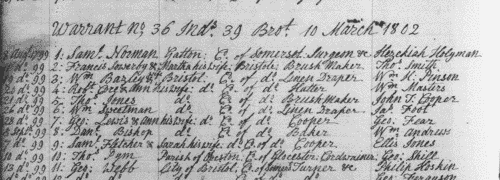 Warrant No. 36 Ind.s 39 Bro.t 10 March 1802
Augt 99 1: Saml. Norman Yatton Co. of Somerset Surgeon & Hezekiah Holyman
do. 99 2: Francis & Martha his wife Bristol Brush Maker Thos. Smith
do. 99 3: Wm. Bristol Co. of do. Linen Draper Wm. K. Pinson
do. 99 4: Robt. & Ann his wife do. Co. of do. Hatter Wm. Masters
do. 99 5: Thos. Jones do. Co. of do. Brush Maker John T. Cooper
do. 99 6: Wm. do. Co. of do. Linen Draper Jas. Foot
do. 99 7: Geo: Lewis & Ann his wife do. Co. of do. Cooper Geo: Fear
Sept. 99 8: Danl. Bishop do. Co. of do. Baker Wm. Andrews
7 do. 99 9: Saml. Fletcher & Sarah his wife do. Co. of do. Cooper Ellis Jones
10 do. 99 10: Thos. Pym Parish of Co. of Glocester Cordwainer Geo: Shill
13 do. 99 11: Geo: Webb City of Bristol, Co. of Turner & Philip Hoskin
Geo: Ferguson